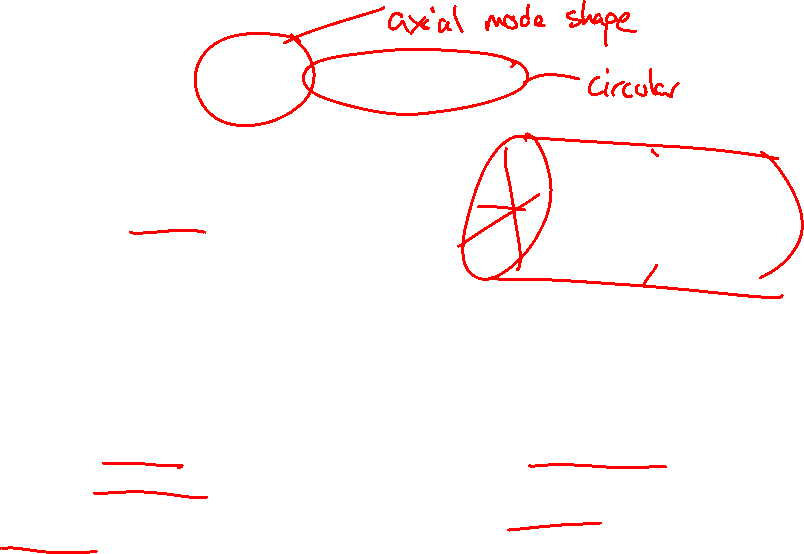 axial mode shape
circular